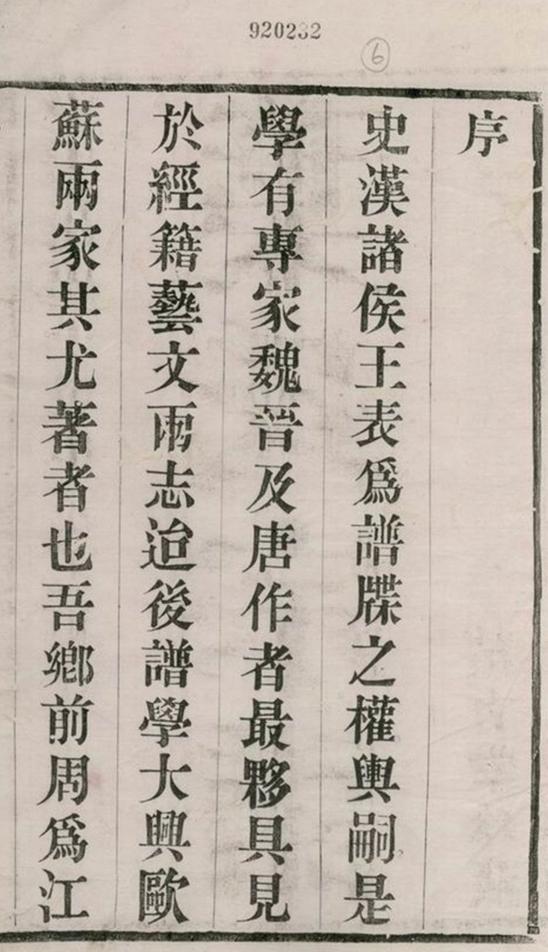 920232
6
序
史漢諸侯王表爲譜牒之權輿嗣是
學有專家魏晉及唐作者最夥具見
於經籍藝文兩志迨後譜學大興歐
蘇兩家其尤著者也吾鄉前周爲江